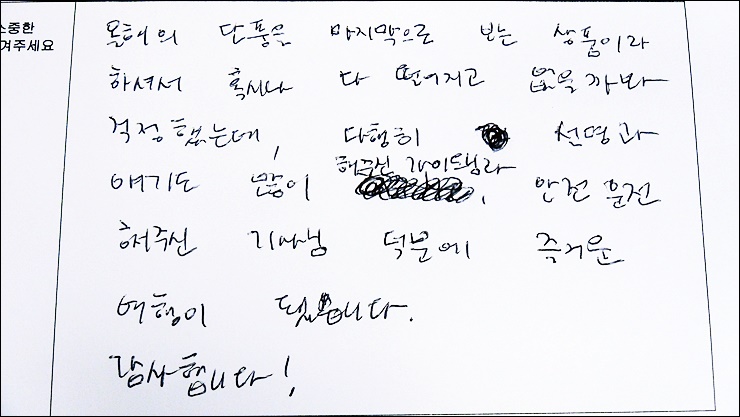 소중한
겨주세요
올해의 단풍을 마지막으로 보는 상품이라
하셔서 혹시나 다 떨어지고 없을까봐
걱정했는데, 다행히 설명과
얘기도 많이 해주신 가이드님과, 안전운전
해주신 기사님 덕분에 즐거운
여행이 됐습니다.
감사합니다!